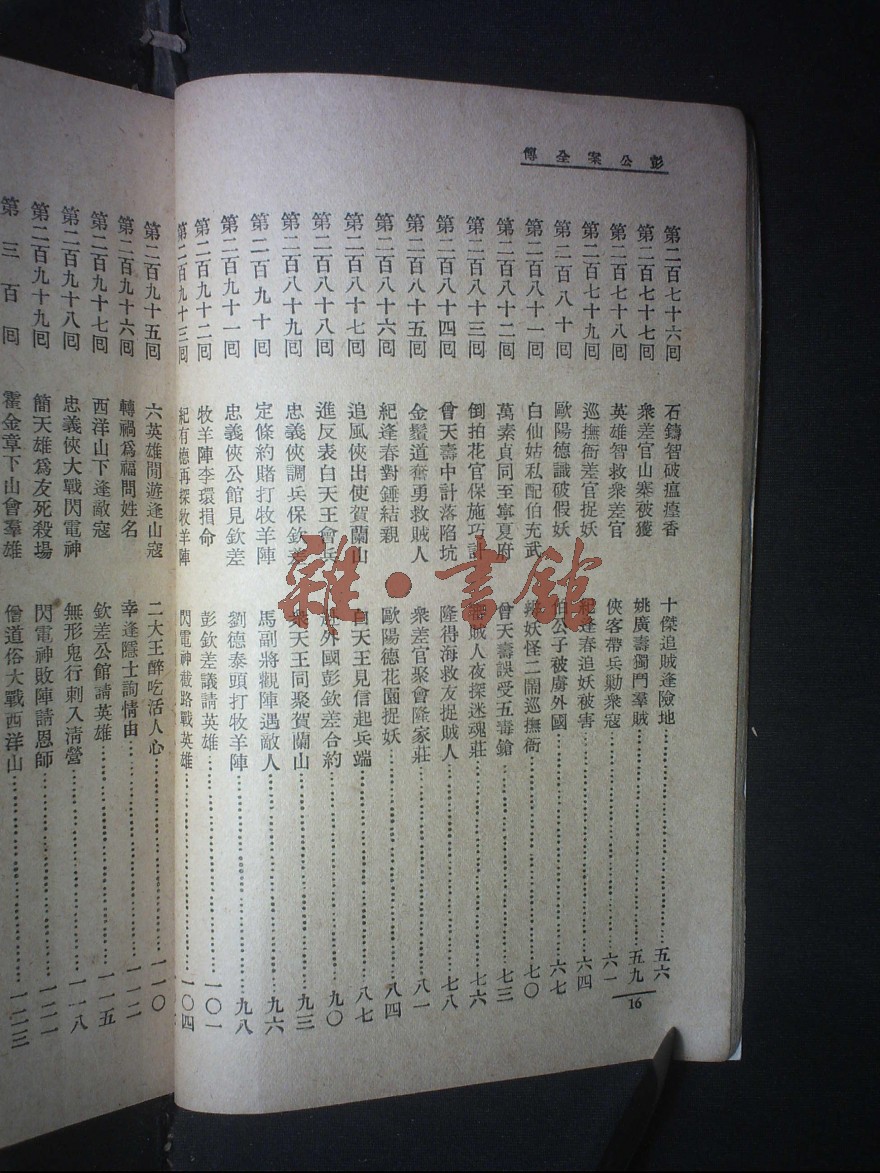 彭公案全傳
第二百七十六回 石鑄智破瘟𤺄香 十傑追賊逢險地 五六
第二百七十七回 衆差官山寨被獲 姚廣壽獨鬥羣賊 五九
第二百七十八回 英雄智救衆差官 俠客帶兵勦衆寇 六一
第二百七十九回 巡撫衙差官捉妖 紀逢春追妖被害 六四
第二百八十回 歐陽德識破假妖 伯公子被虜外國 六七
第二百八十一回 白仙姑私配伯充武 妖怪二鬧巡撫衙 七〇
第二百八十二回 萬素貞同至寧夏府 曾天壽誤受五毒鎗 七三
第二百八十三回 倒拍花官保施巧計 賊人夜探迷魂莊 七六
第二百八十四回 曾天壽中計落陷坑 隆得海救友捉賊人 七八
第二百八十五回 金鬚道奮勇救賊人 衆差官聚會隆家莊 八一
第二百八十六回 紀逢春對錘結親 歐陽德花園捉妖 八四
第二百八十七回 追風俠出使賀蘭山 白天王見信起兵端 八七
第二百八十八回 進反表白天王會兵 外國彭欽差合約 九〇
第二百八十九回 忠義俠調兵保欽差 衆天王同聚賀蘭山 九三
第二百九十回 定條約賭打牧羊陣 馬副將觀陣遇敵人 九六
第二百九十一回 忠義俠公館見欽差 劉德泰頭打牧羊陣 九八
第二百九十二回 牧羊陣李環捐命 彭欽差議請英雄 一〇一
第二百九十三回 紀有德再探牧羊陣 閃電神截路戰英雄 一〇四
16
第二百九十五回 六英雄閒遊逢山寇 二大王醉吃活人心 一一〇
第二百九十六回 轉禍爲福問姓名 幸逢隱士詢情由 一一二
第二百九十七回 西洋山下逢敵寇 欽差公館請英雄 一一五
第二百九十八回 忠義俠大戰閃電神 無形鬼行刺入清營 一一八
第二百九十九回 簡天雄爲友死殺場 閃電神敗陣請恩師 一二一
第三百回 霍金章下山會羣雄 僧道俗大戰西洋山 一二三
雜·書館